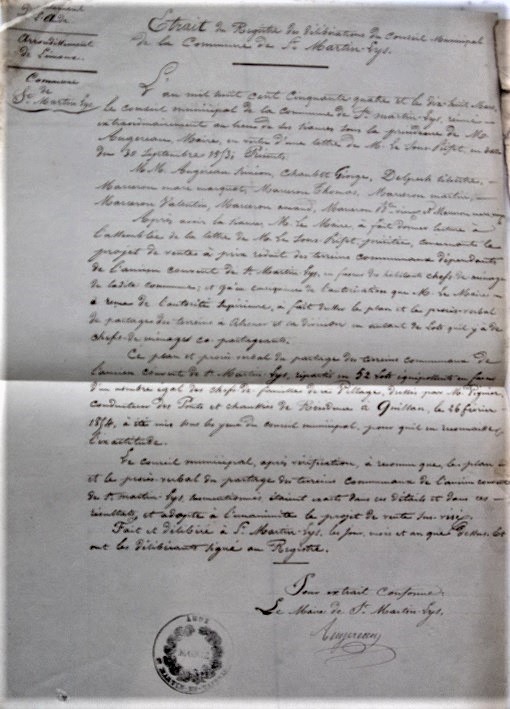 Département
de l'Aude
Arrondissement
de Limoux
Commune
de
St Martin Lys
Extrait du Registre des délibérations du Conseil Municipal
de la Commune de St Martin-Lys.
L'an mil huit cent cinquante quatre et le dix huit Mars,
le conseil municipal de la commune de St martin-Lys, réuni
extraordinairement au lieu de ses séances sous la présidence de Mr
Augereau, Maire, en vertu d'une lettre de Mr le Sous Préfet, en date
du 30 Septembre 1853. Présents
M.M. Augereau Simon, Chaubet George, Delpech
Marceron marc, Marceron Thomas, Marceron martin,
Marceron Valentin, Marceron Marceron et Marceron
Après avoir la séance, Mr le Maire, a fait donner lecture à
l'assemblée de la lettre de Mr le Sous Préfet précitée, concernant le
projet de ventes à prix réduit des terrains communaux dépendants
de l'ancien couvent de St Martin-Lys, en faveur des habitant chefs de ménage
de ladite commune; et qu'en conséquence de l'autorisation que Mr le Maire
a reçue de l'autorité supérieure, a fait dresser le plan et le procès verbal
de partage des terrains à aliéner et sa division en autant de lots qu'il y a de
chefs de ménages co-partageants.
Ce plan et procès verbal du partage des terrains communaux de
l'ancien couvent de St Martin-Lys, répartis en 52 lots équipollents en faveur
d'un nombre égal des chefs de famille de ce Village, dressés par Mr
conducteur des Ponts et chaussées de Résidence à Quillan, le 26 février
1854, a été mis sous les yeux du conseil municipal, pour qu'il en reconnaisse
l'exactitude.
Le conseil municipal, après vérification, a reconnu que le plan
et le procès verbal du partage des terrains communaux de l'ancien couvent
de St martin-Lys, susmentionnés étaient exacts dans ses détails et dans ses
résultats, et adopte à l'unanimité le projet de vente sus-visé
Fait et délibéré à St Martin-Lys, les jour, mois et an que dessus. Et
ont les délibérants signé au Registre.
Pour extrait conforme:
Le Maire de St Martin-Lys.
Augereau
AUDE
MAIRIE